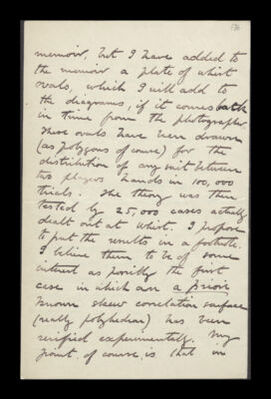 memoir, but I have added to
the memoir a plate of whist
ovals, which I will add to
the diagrams, if it comes back
in time from the photographer
These ovals have been drawn
(as polygons of course) for the
distribution of any suit between
two players hands in 100,000
trials. The theory was then
tested by 25,000 cases actually
dealt out at whist. I propose
to put the results in a footnote.
I believe them to be of some
interest as possibly the first
case in which an a priori
known skew correlation surface
(really polyhedron) has been
verified experimentally. My
point of course is that in